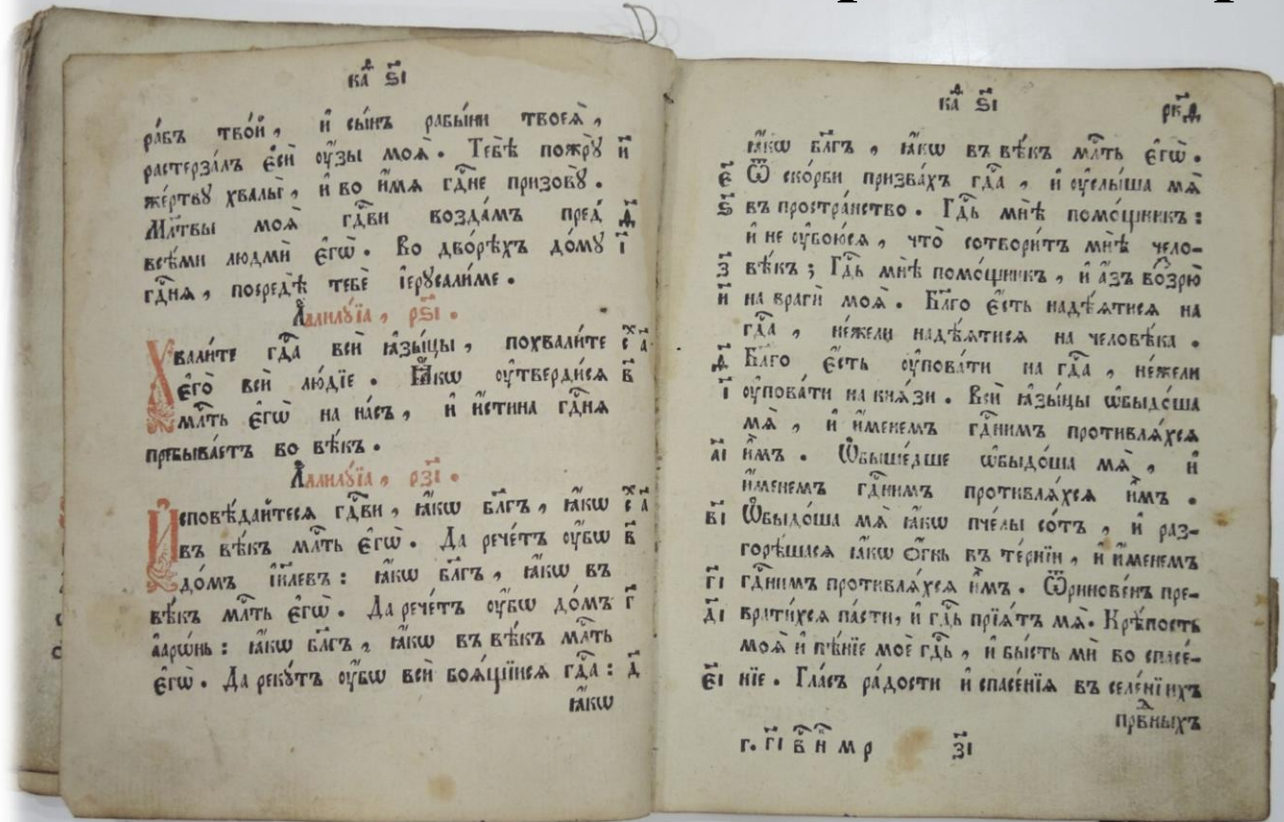 ка҃ѳ ѕ҃і
ра́бъ тво́й , и҆ сы́нъ рабы́ни твоеѧ̀ ,
растерза́лъ є҆сѝ ᲂу҆́зы моѧ̀ . Тебѣ̀ пожрꙋ̀ и҃
же́ртвꙋ хвалы̀ , и҆ во и҆́мѧ гд҇не призовꙋ̀ .
Мл҃твы моѧ̀ гд҇ви возда́мъ пред̾ ѳ҃
всѣ́ми людмѝ є҆гѡ̀ . Во дво́рѣхъ до́мꙋ і҃
гд҇нѧ , посредѣ̀ тебѐ і҆ерꙋсали́ме .
А҆ллилꙋ́їа , рѕ҃і .
Хвали́те гд҇а всѝ ꙗ҆зы́цы , похвали́те сх а҃
є҆го̀ всѝ лю́дїе . Ꙗ҆́кѡ ᲂу҆тверди́сѧ в҃
мл҇ть є҆гѡ̀ на на́съ , и҆ и҆́стина гд҇нѧ
пребыва́етъ во вѣ́къ .
А҆ллилꙋ́їа , рз҃і .
И҆сповѣ́дайтесѧ гд҇ви , ꙗ҆́кѡ бл҃гъ , ꙗ҆́кѡ сх а҃
въ вѣ́къ мл҇ть є҆гѡ̀ . Да рече́тъ ᲂу҆́бѡ в҃
до́мъ і҆и҃левъ : ꙗ҆́кѡ бл҃гъ , ꙗ҆́кѡ въ
вѣ́къ мл҇ть є҆гѡ̀ . Да рече́тъ ᲂу҆́бѡ до́мъ г҃
а҆арѡ́нь : ꙗ҆́кѡ бл҃гъ , ꙗ҆́кѡ въ вѣ́къ мл҇ть
є҆гѡ̀ . Да рекꙋ́тъ ᲂу҆́бѡ всѝ боѧ́щїисѧ гд҇а : д҃
ꙗ҆́кѡ
ка҃ѳ ѕ҃і рк҃д
ꙗ҆́кѡ бл҃гъ , ꙗ҆́кѡ въ вѣ́къ мл҇ть є҆гѡ̀ .
є҃ Ѿ ско́рби призва́хъ гд҇а , и҆ ᲂу҆слы́ша мѧ̀
ѕ҃ въ простра́нство . Гд҇ь мнѣ̀ помо́щникъ :
и҆ не ᲂу҆бою́сѧ , что̀ сотвори́тъ мнѣ̀ чело-
з҃ вѣ́къ ; Гд҇ь мнѣ̀ помо́щникъ , и҆ а҆́зъ воззрю̀
и҃ на врагѝ моѧ̀ . Бл҃го є҆́сть надѣ́ѧтисѧ на
гд҇а , не́жели надѣ́ѧтисѧ на человѣ́ка .
ѳ҃ Бл҃го є҆́сть ᲂу҆пова́ти на гд҇а , не́жели
і҃ ᲂу҆пова́ти на кнѧ́зи . Всѝ ꙗ҆зы́цы ѡ҆быдо́ша
мѧ̀ , и҆ и҆́менемъ гд҇нимъ противлѧ́хсѧ
а҃і и҆̀мъ . Ѡ҆быше́дше ѡ҆быдо́ша мѧ̀ , и҆
и҆́менемъ гд҇нимъ противлѧ́хсѧ и҆̀мъ .
в҃і Ѡ҆быдо́ша мѧ̀ ꙗ҆́кѡ пче́лы со́тъ , и҆ раз-
горѣ́шасѧ ꙗ҆́кѡ ѻ҆́гнь въ те́рнїи , и҆ и҆́менемъ
г҃і гд҇нимъ противлѧ́хсѧ и҆̀мъ . Ѿринове́нъ пре-
д҃і врати́хсѧ па́сти , и҆ гд҇ь прїѧ́тъ мѧ̀ . Крѣ́пость
моѧ̀ и҆ пѣ́нїе моѐ гд҇ь , и҆ бы́сть мѝ во спасе́-
є҃і нїе . Гла́съ ра́дости и҆ спасе́нїѧ въ селе́нїихъ
првⷣныхъ
г . г҃і в҃ н҃ м р з҃і